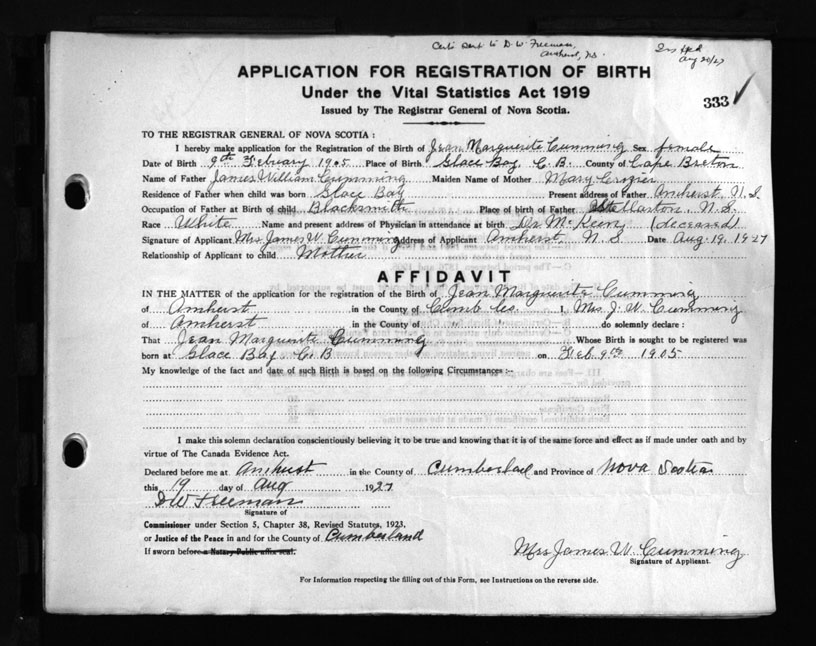 Cert. Sent to D. W. Freeman,
Amherst, N.S.
Aug 20/27
APPLICATION FOR REGISTRATION OF BIRTH
Under the Vital Statistics Act 1919
333 ✓
Issued by The Registrar General of Nova Scotia.
TO THE REGISTRAR GENERAL OF NOVA SCOTIA :
I hereby make application for the Registration of the Birth of Jean Marguerite Cumming Sex female
Date of Birth 9th February 1905 Place of Birth Glace Bay, C.B. County of Cape Breton
Name of Father James William Cumming Maiden Name of Mother Mary Crozier
Residence of Father when child was born Glace Bay Present address of Father Amherst, N.S
Occupation of Father at Birth of child Blacksmith Place of birth of Father Stellarton, N.S.
Race White Name and present address of Physician in attendance at birth Dr. McKeen (deceased)
Signature of Applicant Mrs James W. Cumming Address of Applicant Amherst, N.S Date Aug. 19, 1927
Relationship of Applicant to child Mother
AFFIDAVIT
IN THE MATTER of the application for the registration of the Birth of Jean Marguerite Cumming
of Amherst in the County of Cumb Co. I, Mrs J. W. Cumming
of Amherst in the County of " " do solemnly declare :
That Jean Marguerite Cumming Whose Birth is sought to be registered was
born at Glace Bay C.B on Feb. 9th 1905
My knowledge of the fact and date of such Birth is based on the following Circumstances :-
I make this solemn declaration conscientiously believing it to be true and knowing that it is of the same force and effect as if made under oath and by
virtue of The Canada Evidence Act.
Declared before me at Amherst in the County of Cumberland and Province of Nova Scotia
this 19 day of Aug 1927
D W Freeman
Signature of
Commissioner under Section 5, Chapter 38, Revised Statutes, 1923,
or Justice of the Peace in and for the County of Cumberland
If sworn before a Notary Public affix seal.
Mrs James W. Cumming
Signature of Applicant.
For Information respecting the filling out of this Form, see Instructions on the reverse side.